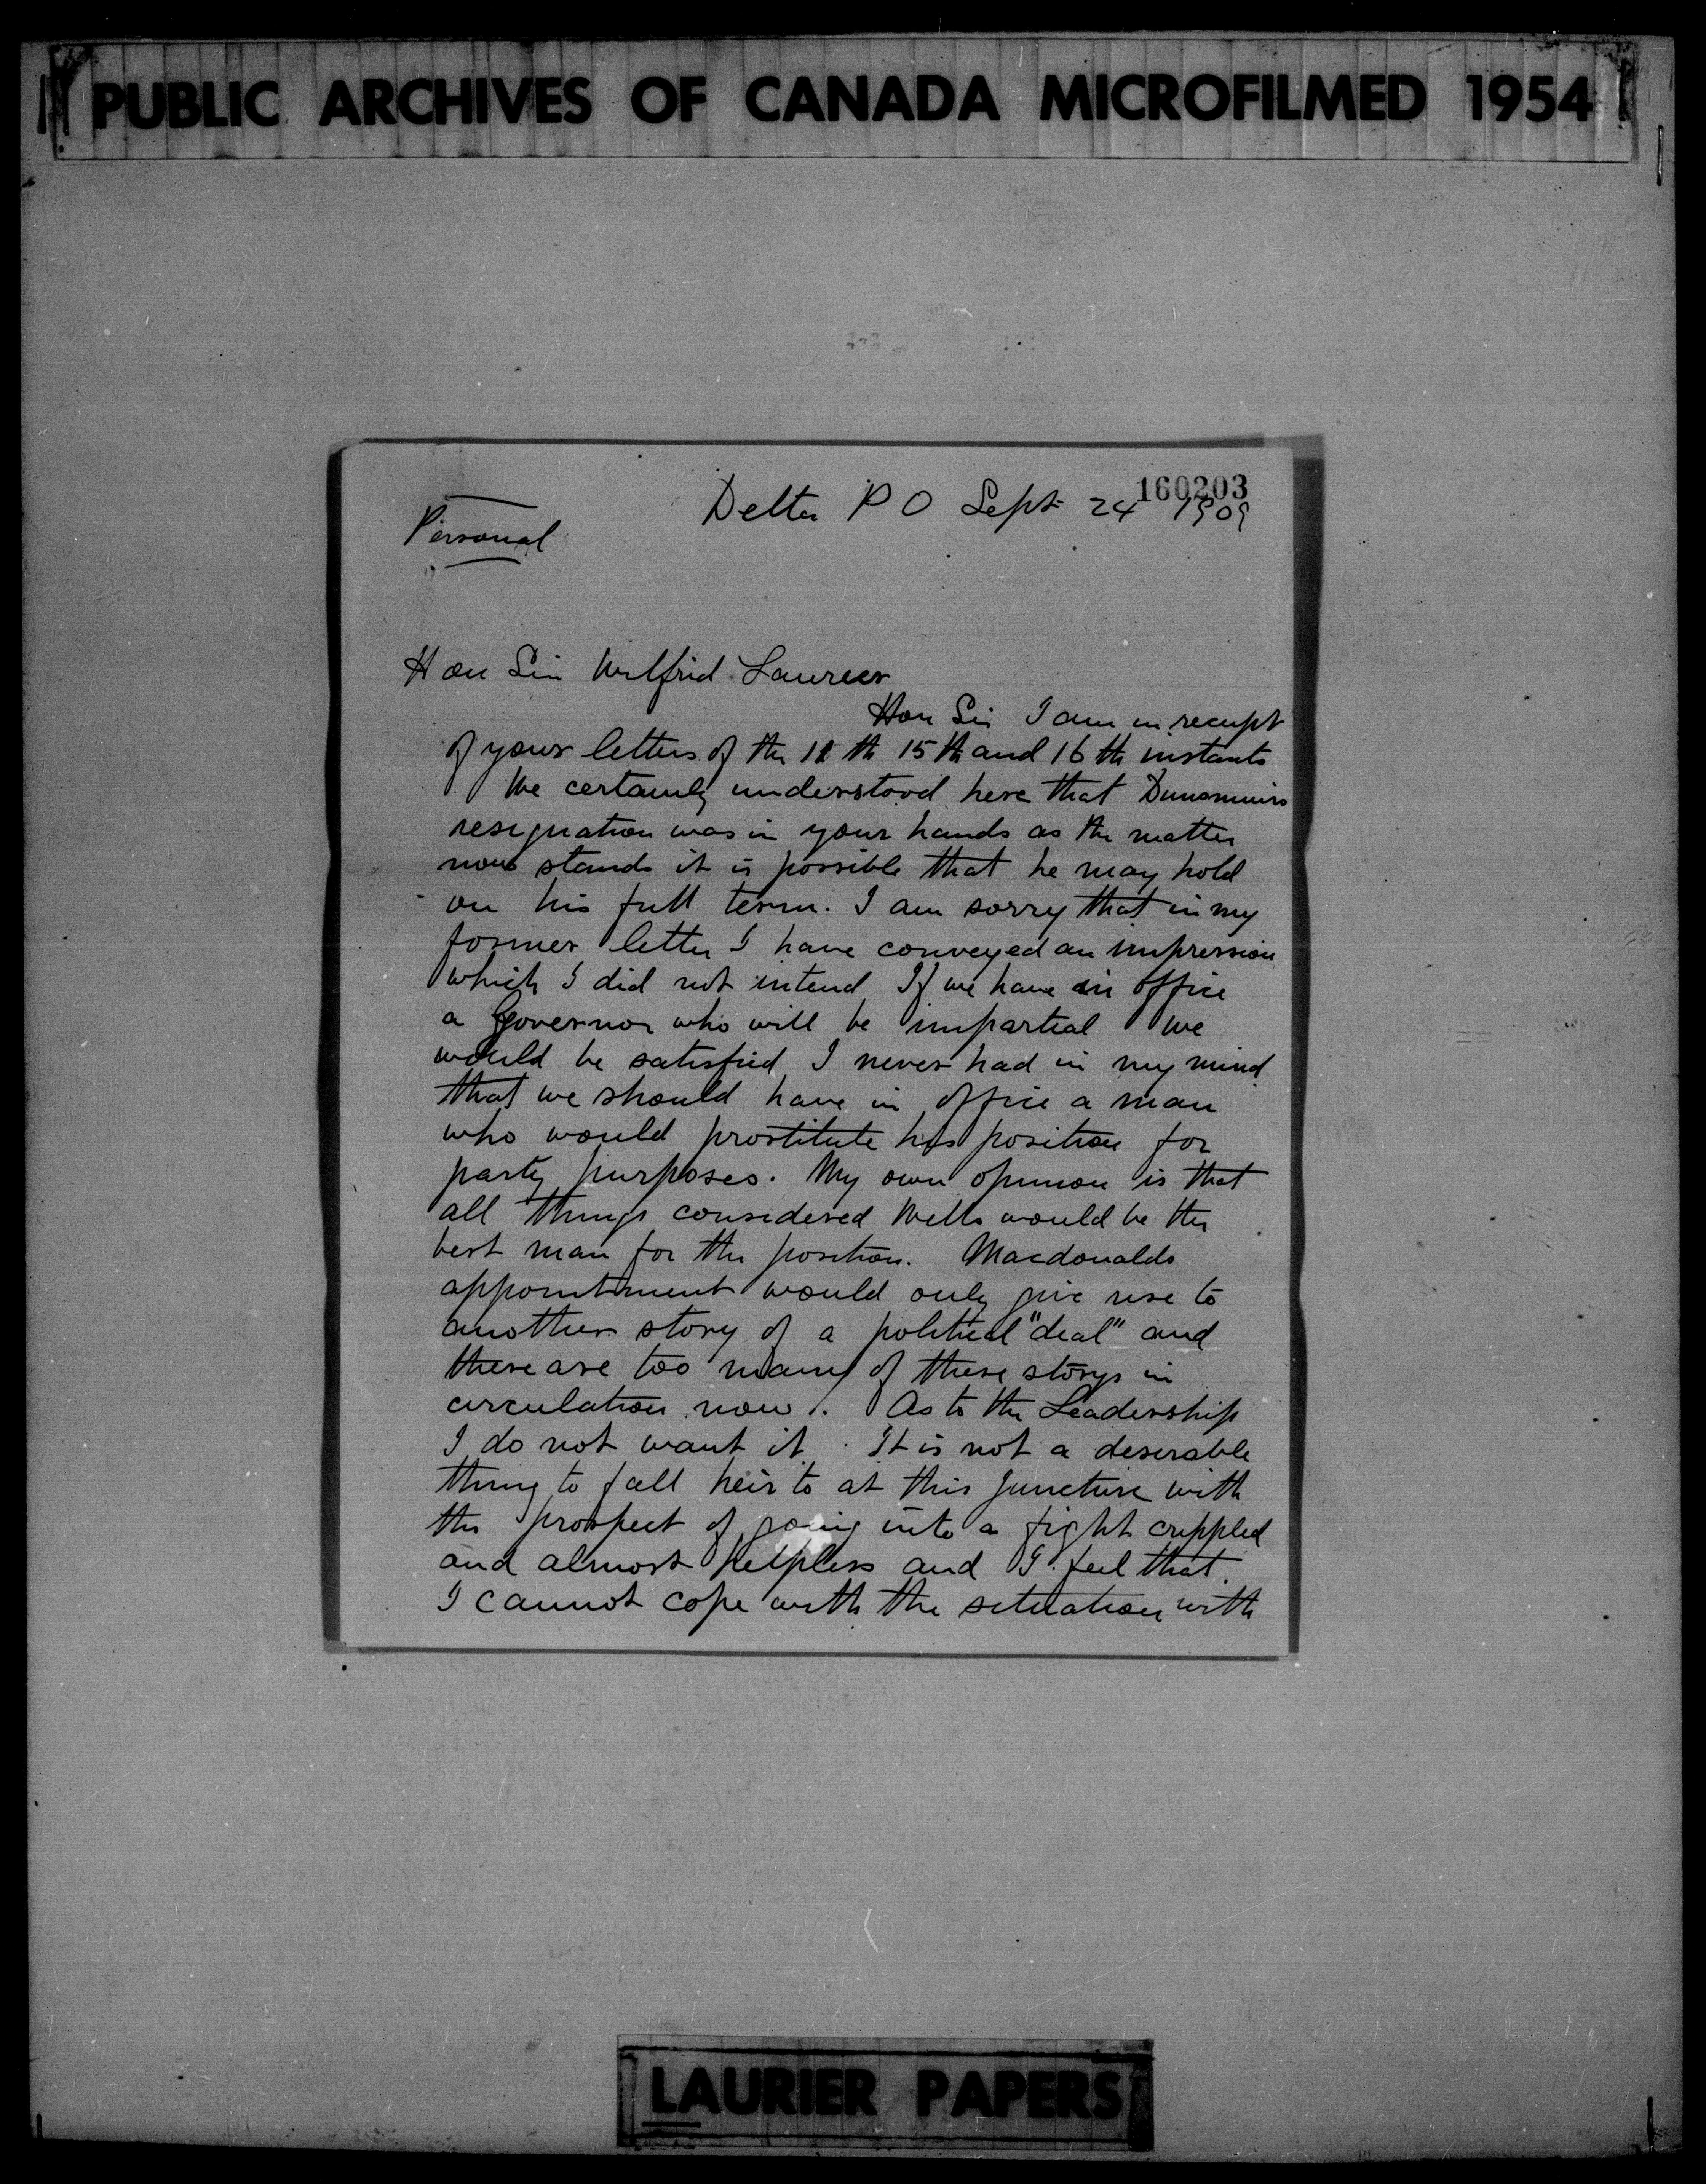 PUBLIC ARCHIVES OF CANADA MICROFILMED 1954
160203
Delta P O Sept 24 1909
Personal
Hon Sir Wilfrid Laurier
Hon Sir I am in receipt
of your letters of the 11 th 15 th and 16 th instants
We certainly understood here that Dunsmuirs
resignation was in your hands as the matter
now stands it is possible that he may hold
on his full term. I am sorry that in my
former letter I have conveyed an impression
which I did not intend If we have in office
a Governor who will be impartial we
would be satisfied I never had in my mind
that we should have in office a man
who would prostitute his position for
party purposes. My own opinion is that
all things considered Wells would be the
best man for the position. Macdonalds
appointment would only give rise to
another story of a political "deal" and
there are too many of these storys in
circulation now. As to the Leadership
I do not want it. It is not a deserable
thing to fall heir to at this juncture with
the prospect of going into a fight crippled
and almost helpless and I feel that
I cannot cope with the situation with
LAURIER PAPERS